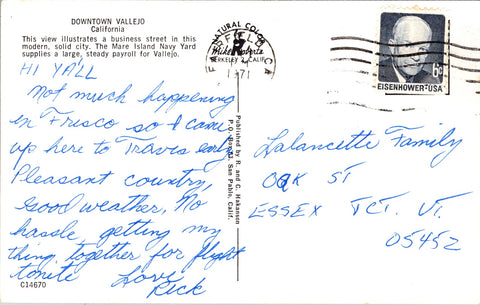 DOWNTOWN VALLEJO
California
This view illustrates a business street in this
modern, solid city. The Mare Island Navy Yard
supplies a large, steady payroll for Vallejo.
HI YA'LL
Not much happening
in Frisco so I came
up here to Travis early
Pleasant country,
Good weather, No
hassle getting my
thing together for flight
tonite Love
Rick
C14670
NATURAL COLOR
Mike Roberts
BERKELEY 2, CALIF.
CA
1971
Published by R. and C. Hakanson
P.O. San Pablo, Calif.
6¢
EISENHOWER·USA
Lalancette Family
OAK ST
ESSEX JCT. VT.
05452